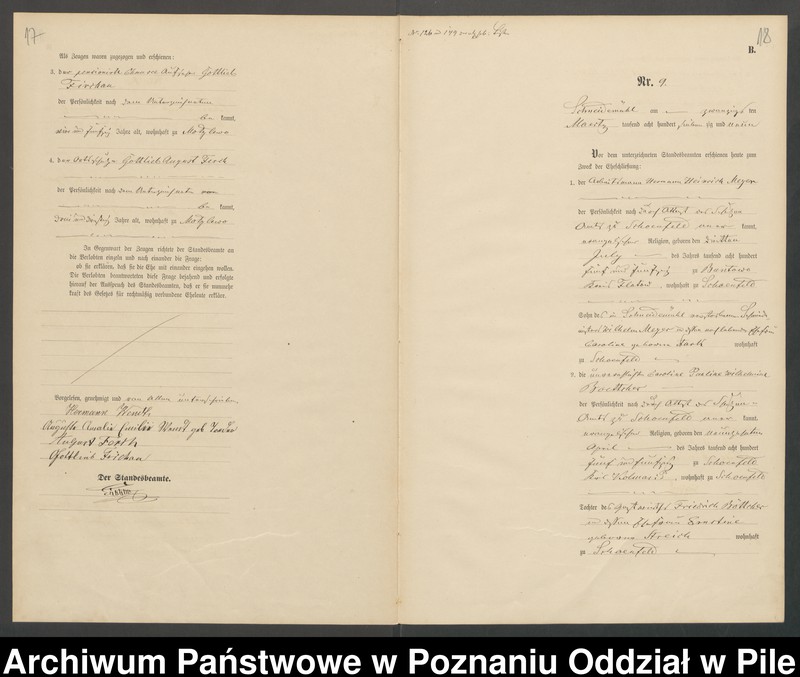 17
Als Zeugen waren zugezogen und erschienen:
3. der pensionirte Chaussee Aufseher Gottlieb
Firchau
der Persönlichkeit nach dem Unterzeichneten
be kannt,
vier und fünfzig Jahre alt, wohnhaft zu Motylewo
4. der Ortsschulze Gottlieb August
der Persönlichkeit nach dem Unterzeichneten
be kannt,
Jahre alt, wohnhaft zu Motylewo
In Gegenwart der Zeugen richtete der Standesbeamte an
die Verlobten einzeln und nach einander die Frage:
ob sie erklären, daß sie die Ehe mit einander eingehen wollen.
Die Verlobten beantworteten diese Frage bejahend und erfolgte
hierauf der Ausspruch des Standesbeamten, daß er sie nunmehr
kraft des Gesetzes für rechtmäßig verbundene Eheleute erkläre.
Vorgelesen, genehmigt und von allen unterschrieben
Hermann Wendt
Auguste Amalie Emilie Wendt geb.
August
Gottlieb Firchau
Der Standesbeamte.
18
B.
Nr. 9.
Schneidemühl am zwanzigsten
Maerz tausend acht hundert siebenzig und neun
Vor dem unterzeichneten Standesbeamten erschienen heute zum
Zweck der Eheschließung:
1. der Arbeitsmann Hermann Heinrich Meyer
der Persönlichkeit nach durch Attest des Schulzen
Amts zu Schoenfeld aner kannt,
evangelischer Religion, geboren den dritten
July des Jahres tausend acht hundert
fünf und fünfzig zu
Kreis Flatow, wohnhaft zu Schoenfeld
Sohn des in Schneidemühl verstorbenen
Wilhelm Meyer
Caroline geborene wohnhaft
zu Schoenfeld
2. die unverehelichte Caroline Pauline Wilhelmine
Boettcher
der Persönlichkeit nach durch Attest des Schulzen
Amts zu Schoenfeld aner kannt,
evangelischer Religion, geboren den neunzehnten
April des Jahres tausend acht hundert
fünf und fünfzig zu Schoenfeld
Kreis Kolmar, wohnhaft zu Schoenfeld
Tochter des Friedrich Böttcher
und dessen Ehefrau Ernstine
geborene Streich wohnhaft
zu Schoenfeld
Archiwum Państwowe w Poznaniu Oddział w Pile